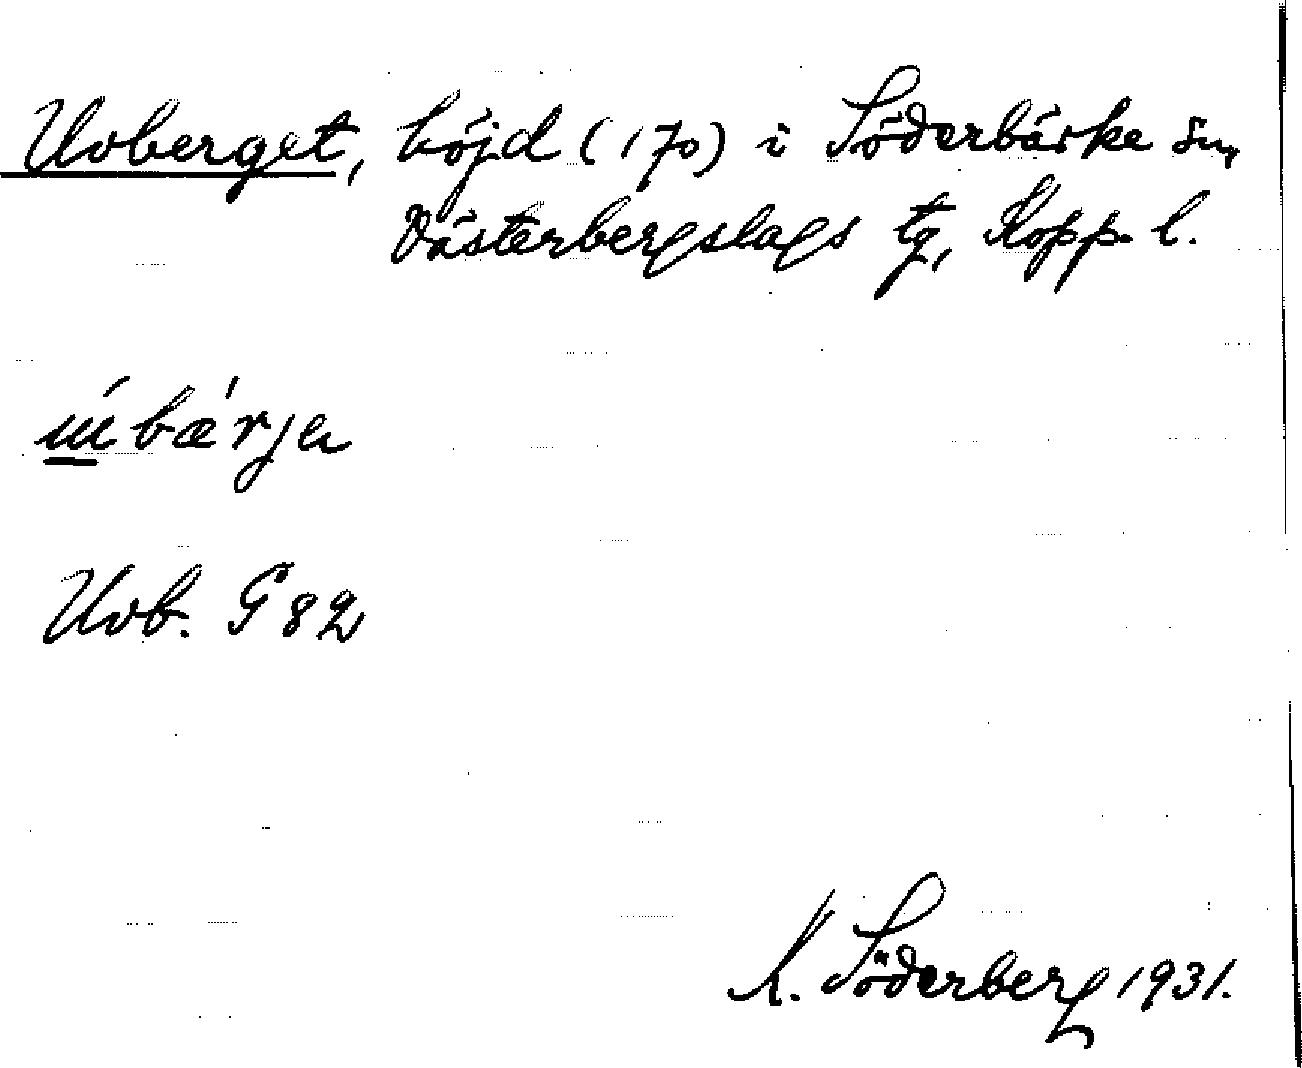 Uvberget, höjd (170) i Söderbärke sn,
Västerbergslags tg, Kopp. l.
úbǽrja
Uvb. G 82
K. Söderberg 1931.